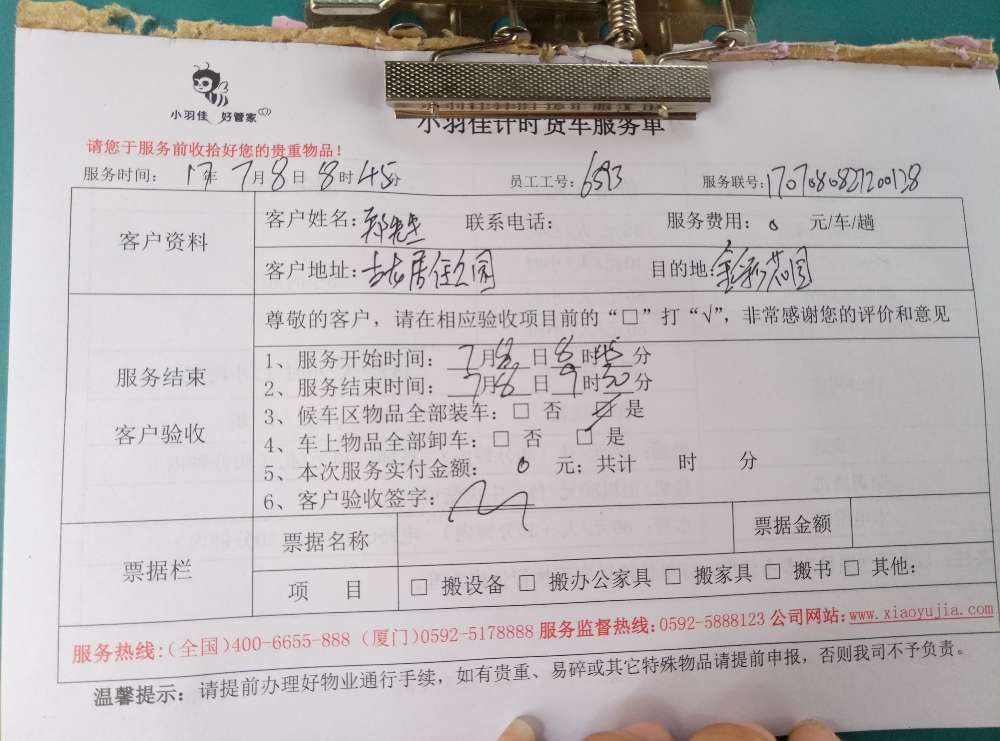 小羽佳 好管家
小羽佳计时货车服务单
请您于服务前收拾好您的贵重物品！
服务时间： 17年 7月8日 8时45分 员工工号：6593 服务联号：
客户资料 客户姓名：郑先生 联系电话： 服务费用：0 元/车/趟
客户地址： 目的地：
尊敬的客户，请在相应验收项目前的“□”打“√”，非常感谢您的评价和意见
服务结束 客户验收
1、服务开始时间： 7月8日8时45分
2、服务结束时间： 7月8日9时30分
3、候车区物品全部装车：□ 否 ☑ 是
4、车上物品全部卸车：□ 否 □ 是
5、本次服务实付金额： 0 元；共计 时 分
6、客户验收签字：
票据栏 票据名称 票据金额
项 目 □ 搬设备 □ 搬办公家具 □ 搬家具 □ 搬书 □ 其他：
服务热线:（全国）400-6655-888（厦门）0592-5178888 服务监督热线:0592-5888123 公司网站:www.xiaoyujia.com
温馨提示：请提前办理好物业通行手续，如有贵重、易碎或其它特殊物品请提前申报，否则我司不予负责。